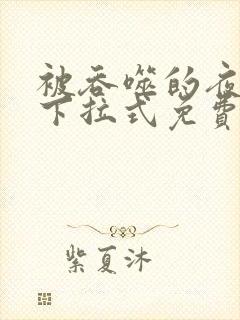 被吞噬的夜
下拉式免費
紫夏沐